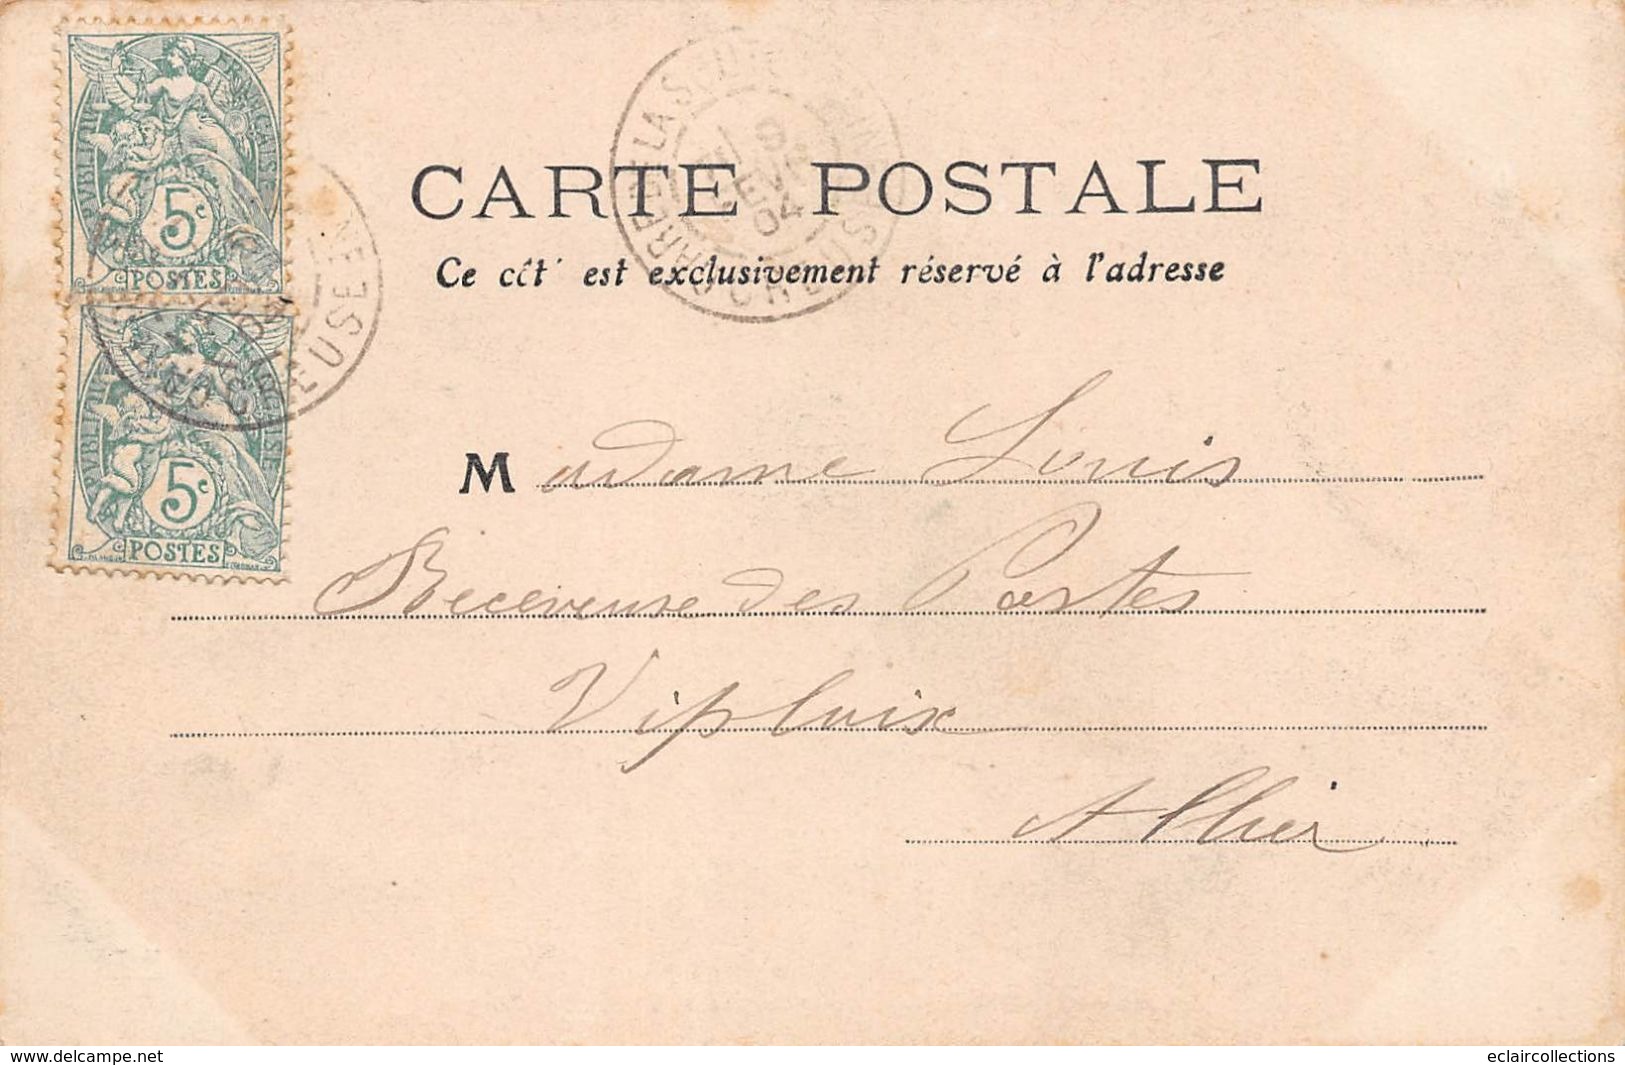 RÉPUBLIQUE FRANÇAISE
5c
POSTES
RÉPUBLIQUE FRANÇAISE
5c
POSTES
04
CREUSE
CARTE POSTALE
Ce côt' est exclusivement réservé à l'adresse
Madame Louis
Receveuse des Postes
Viplaix
Allier
www.delcampe.net
eclaircollections